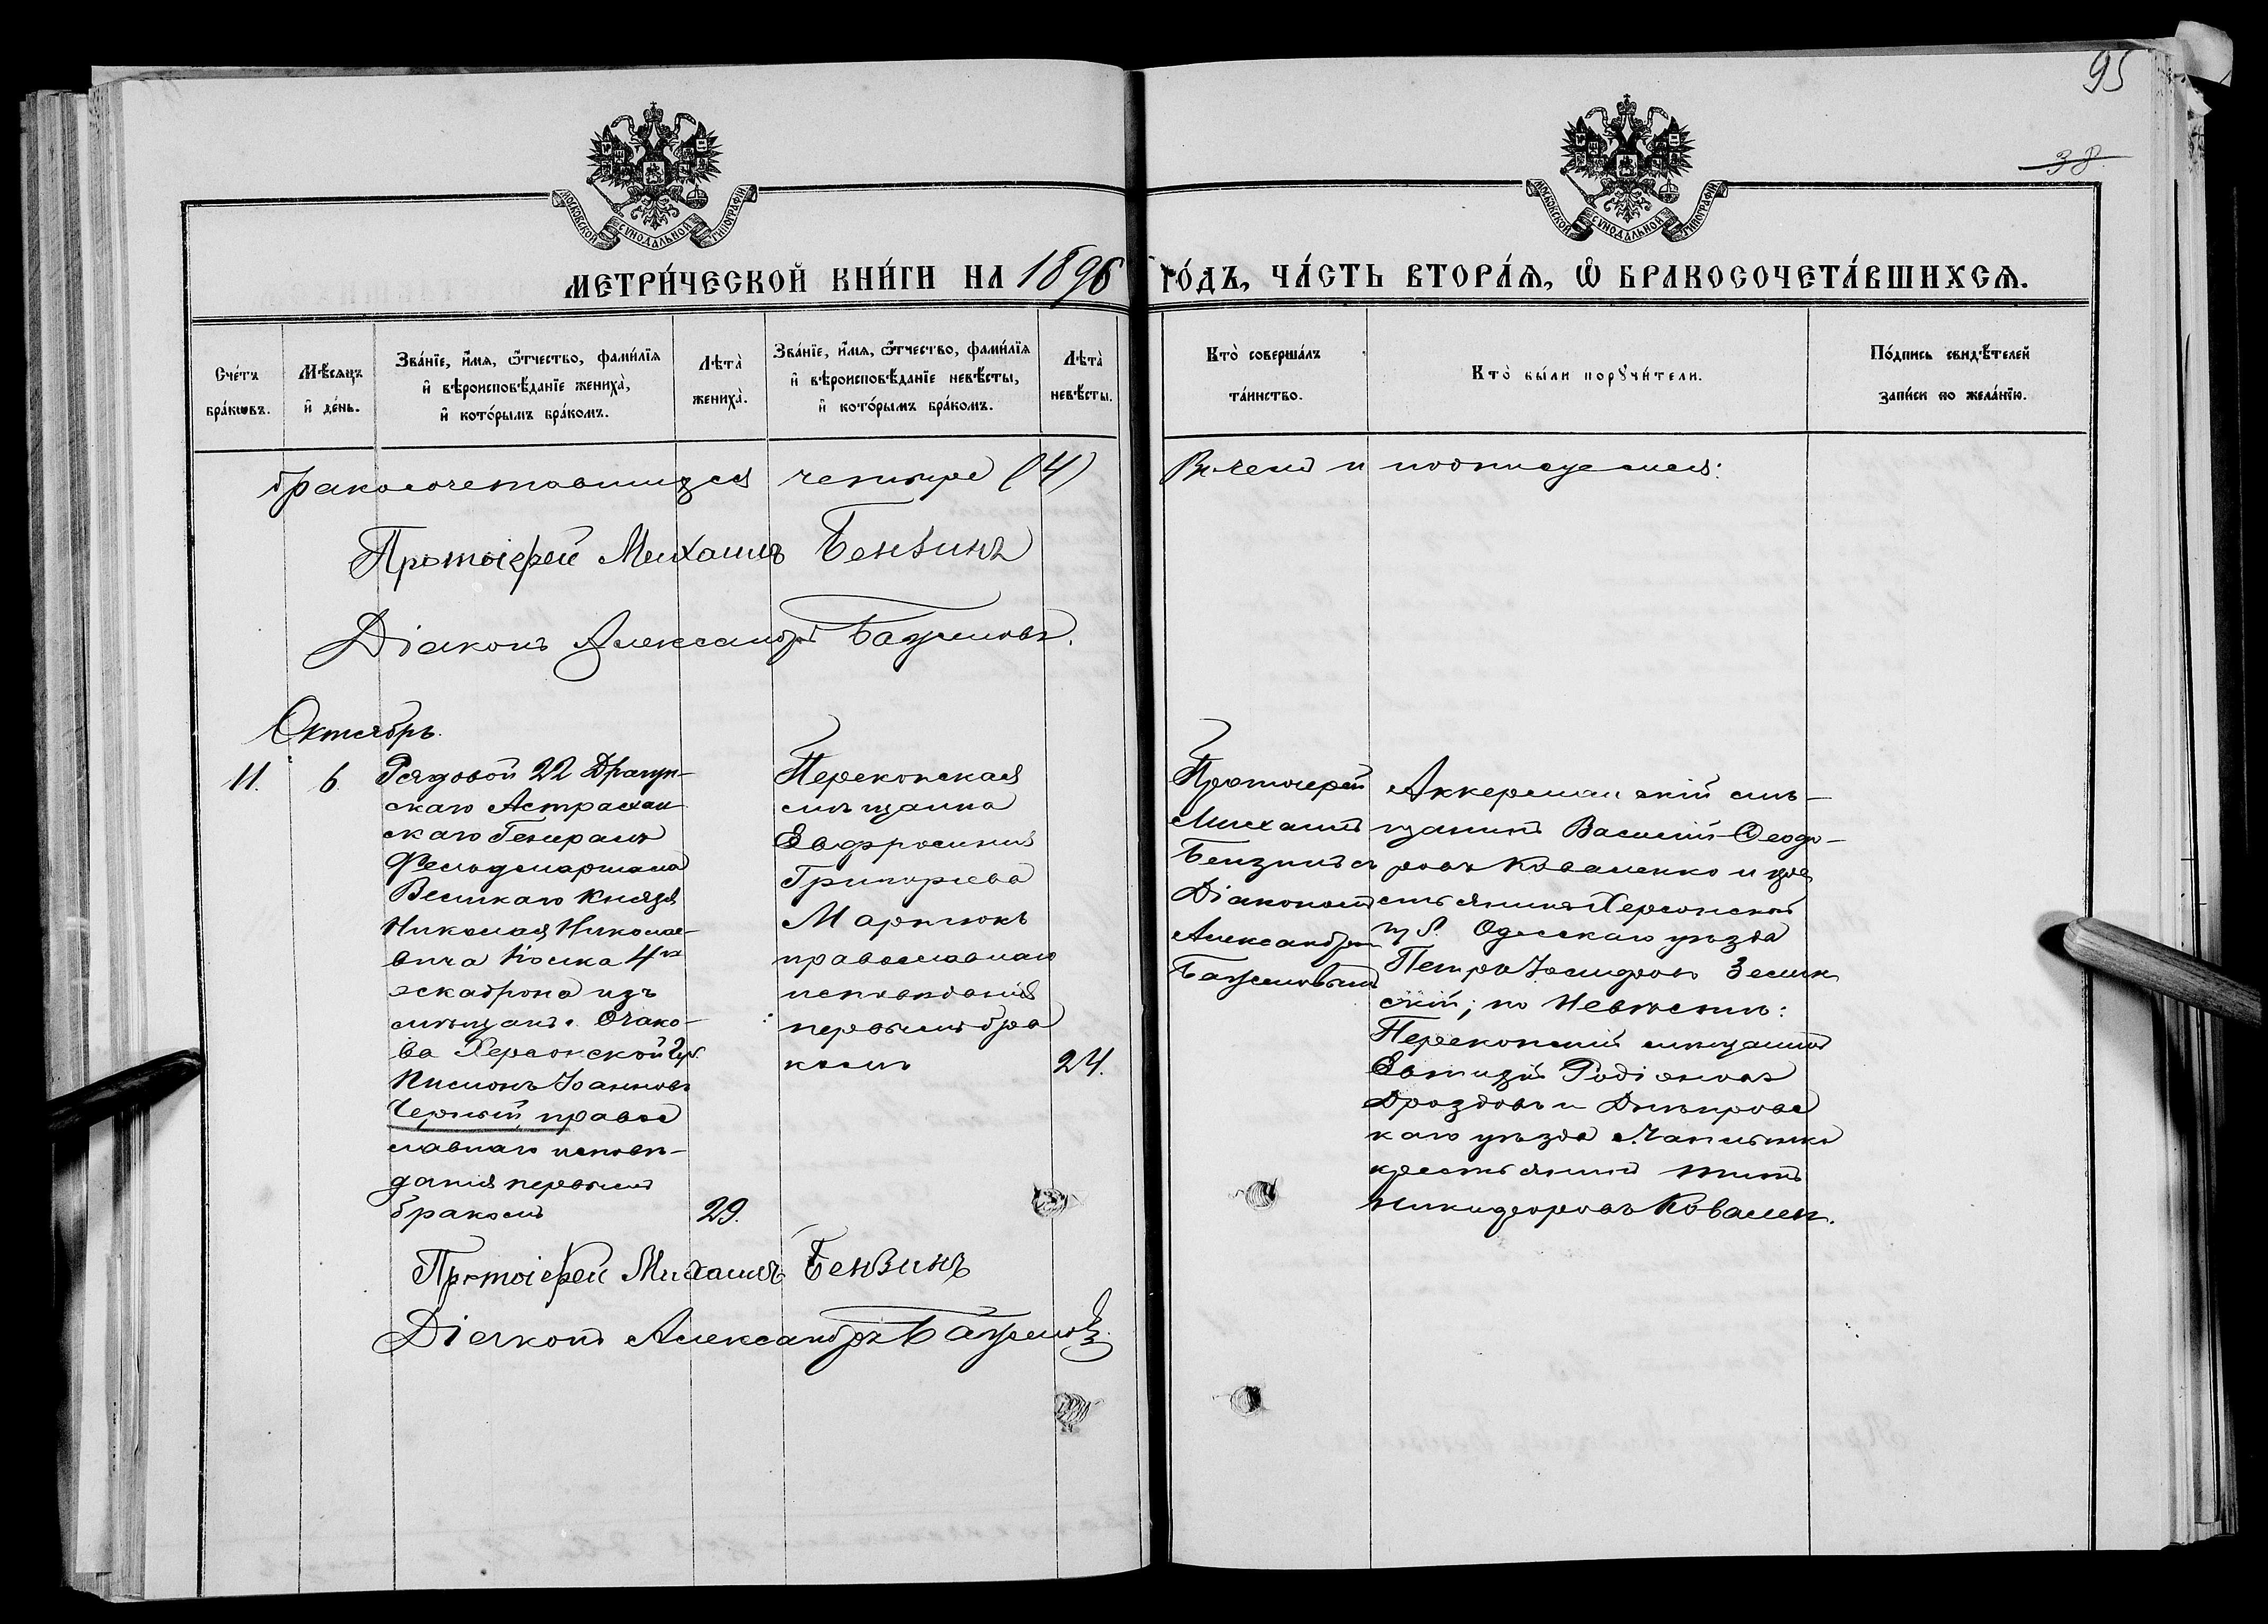 95
38
МОСКОВСКОЙ СѴНОДАЛЬНОЙ ТИПОГРАФІИ
МОСКОВСКОЙ СѴНОДАЛЬНОЙ ТИПОГРАФІИ
МЕТРИ́ЧЕСКОЙ КНИ́ГИ НА 1896 ГО́ДЪ, ЧА́СТЬ ВТОРА́Ѧ, Ѡ҆ БРАКОСОЧЕТА́ВШИХСѦ.
Сче́тъ бра́кѡвъ.
Мѣ́сяцъ и҆ де́нь.
Зва́нїе, и҆́мѧ, ѻ҆́тчество, фами́лїѧ
и҆ вѣроисповѣ́данїе жениха̀,
и҆ кото́рымъ бра́комъ.
Лѣта̀
жениха̀.
Зва́нїе, и҆́мѧ, ѻ҆́тчество, фами́лїѧ
и҆ вѣроисповѣ́данїе невѣ́сты,
и҆ кото́рымъ бра́комъ.
Лѣта̀
невѣ́сты.
Кто̀ соверша́лъ
та́инство.
Кто̀ бы́ли порꙋчи́тели.
По́дпись свидѣ́телей
запи́си по жела́нїю.
бракосочетавшихся четыре (4)
В чемъ и подписуемся:
Протоіерей Михаилъ Бензинъ
Діаконъ Александръ Баженовъ.
Октябрь.
11. 6.
Рядовой 22 Драгун-
скаго Астрахан
скаго Генералъ
Фельдмаршала
Великаго Князя
Николая Николае-
вича полка 4го
эскадрона изъ
мѣщанъ г. Очако-
ва Херсонской Губ.
Пимонъ Іоанновъ
Черный, правос
лавнаго исповѣ-
данія первымъ
бракомъ
29.
Перекопская
мѣщанка
Евфросинія
Григорьева
Мартюкъ
православнаго
исповѣданія
первымъ бра
комъ
24.
Протоіерей
Михаилъ
Бензинъ съ
Діакономъ
Александромъ
Баженовымъ
Аккерманскій мѣ-
щанинъ Василій Ѳеодо-
ровъ Коваленко и кре
стьянинъ Херсонской
губ. Одесскаго уѣзда
Петръ Іосифовъ Зелин
скій; по Невѣстѣ:
Перекопскій мѣщанинъ
Евтихій Родіоновъ
Дроздовъ и Днѣпровс
каго уѣзда м. Чаплинки
крестьянинъ Титъ
Никифоровъ Ковален.
Протоіерей Михаилъ Бензинъ
Діаконъ Александръ Баженовъ.